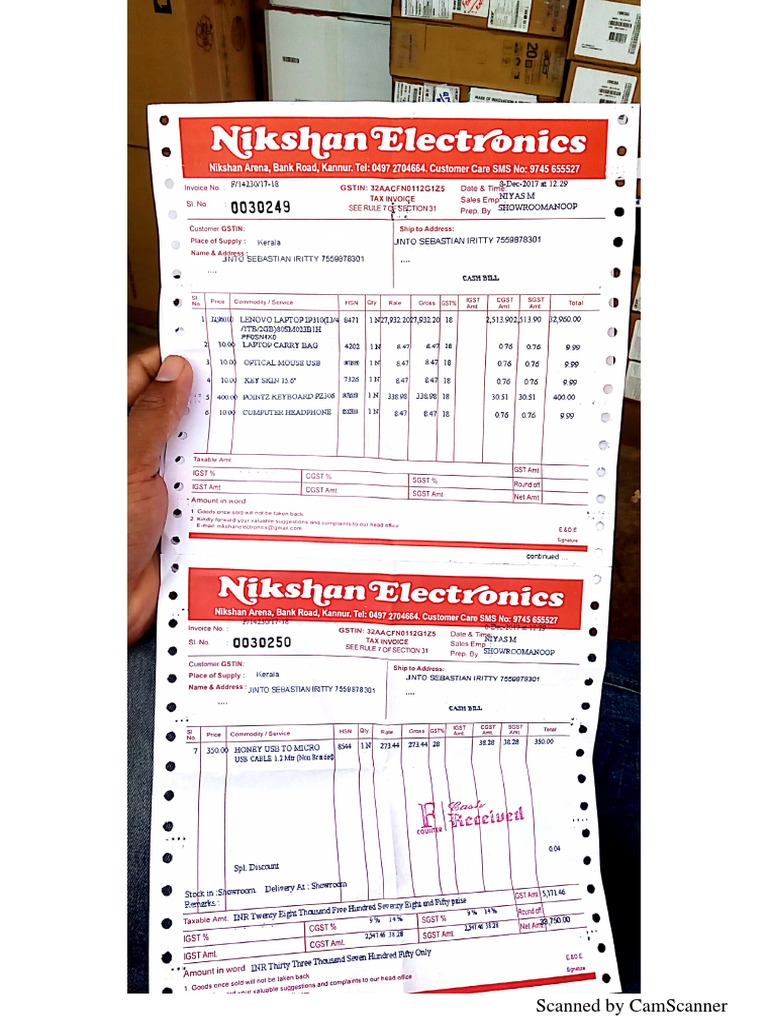 Nikshan Electronics
Nikshan Arena, Bank Road, Kannur. Tel: 0497 2704664. Customer Care SMS No: 9745 655527
Invoice No. : F/14230/17-18 GSTIN: 32AACFN0112G1Z5 Date & Time 8-Dec-2017 at 12:29
TAX INVOICE Sales Emp NIYAS M
Sl. No. : 0030249 SEE RULE 7 OF SECTION 31 Prep. By SHOWROOMANOOP
Customer GSTIN: Ship to Address:
Place of Supply : Kerala JINTO SEBASTIAN IRITTY 7559878301
Name & Address : JINTO SEBASTIAN IRITTY 7559878301
.... ....
CASH BILL
Sl No. Price Commodity / Service HSN Qty Rate Gross GST% IGST Amt. CGST Amt. SGST Amt. Total
1 LENOVO LAPTOP IP310(I3/4 8471 1 N 27,932.20 27,932.20 18 2,513.90 2,513.90 32,960.00
/1TB/2GB)80SM023BIH
PF0SN4X0
2 10.00 LAPTOP CARRY BAG 4202 1 N 8.47 8.47 18 0.76 0.76 9.99
3 10.00 OPTICAL MOUSE USB 1 N 8.47 8.47 18 0.76 0.76 9.99
4 10.00 KEY SKIN 15.6" 7326 1 N 8.47 8.47 18 0.76 0.76 9.99
5 400.00 POINTZ KEYBOARD PZ306 1 N 338.98 338.98 18 30.51 30.51 400.00
6 10.00 COMPUTER HEADPHONE 1 N 8.47 8.47 18 0.76 0.76 9.99
Taxable Amt. GST Amt
IGST % CGST % SGST % Round off
IGST Amt CGST Amt. SGST Amt. Net Amt
Amount in word
1. Goods once sold will not be taken back
2. Kindly forward your valuable suggestions and complaints to our head office
E-mail: nikshanelectronics@gmail.com E & O E
Signature
continued ...
Nikshan Electronics
Nikshan Arena, Bank Road, Kannur. Tel: 0497 2704664. Customer Care SMS No: 9745 655527
Invoice No. : F/14230/17-18 GSTIN: 32AACFN0112G1Z5 Date & Time 8-Dec-2017 at 12:29
TAX INVOICE Sales Emp NIYAS M
Sl. No. : 0030250 SEE RULE 7 OF SECTION 31 Prep. By SHOWROOMANOOP
Customer GSTIN: Ship to Address:
Place of Supply : Kerala JINTO SEBASTIAN IRITTY 7559878301
Name & Address : JINTO SEBASTIAN IRITTY 7559878301
.... ....
CASH BILL
Sl No. Price Commodity / Service HSN Qty. Rate Gross GST% IGST Amt. CGST Amt. SGST Amt. Total
7 350.00 HONEY USB TO MICRO 8544 1 N 273.44 273.44 28 38.28 38.28 350.00
USB CABLE 1.2 Mtr (Non Braided)
F COUNTER Cash Received
0.04
Spl. Discount
Stock in :Showroom Delivery At : Showroom
Remarks :
Taxable Amt. INR Twenty Eight Thousand Five Hundred Seventy Eight and Fifty paise GST Amt. 5,171.46
IGST % CGST % 9 % 14 % SGST % 9 % 14 % Round off
IGST Amt. CGST Amt. 2,547.46 38.28 SGST Amt. 2,547.46 38.28 Net Amt 33,750.00
Amount in word INR Thirty Three Thousand Seven Hundred Fifty Only
1. Goods once sold will not be taken back E & O E
your valuable suggestions and complaints to our head office Signature
Scanned by CamScanner